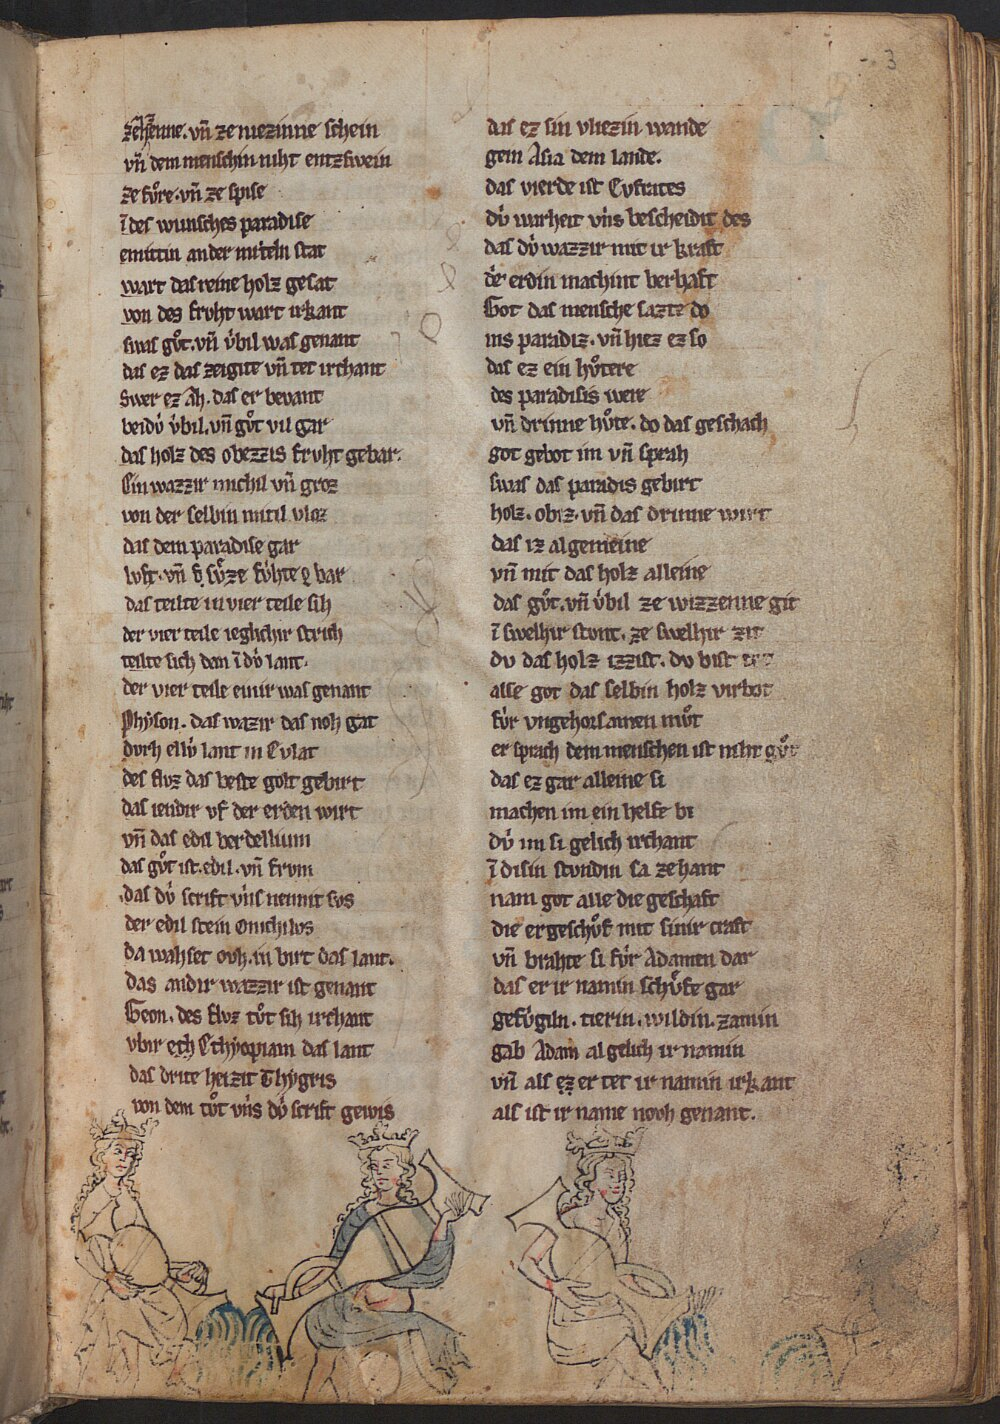 3
zehenne. vn̄ ze niezinne schein
vn̄ dem menschin niht entzswein
ze fv̊re. vn̄ ze spise
ī des wunsches paradise
emittin an der mitteln stat
wart das reine holz gesat
von des frvht wart irkant
swas gv̊t. vn̄ v́bil was genant
das ez das zeigite vn̄ tet irchant
Swer ez āh. das er bevant
beidv́ v́bil. vn̄ gv̊t vil gar
das holz des obezzis frvht gebar.
Ein wazzir michil vn̄ groz
von der selbin mitil vloz
das dem paradise gar
lvft. vn̄ sv̊ze fv́hte bar
das teilte in vier teile sih
der vier teile ieglichir strich
teilte sich dan ī dv́ lant.
der vier teile einir was genant
Physon. das wazir das noh gat
dvrh ellv́ lant in Evlat
des flvz das beste golt gebirt
das iendir vf der erden wirt
vn̄ das edil berdellium
das gv̊t ist. edil. vn̄ frvm
das dv́ scrift vńs nennit svs
der edil stein onichilvs
da wahset ovh. in birt das lant.
das andir wazzir ist genant
Geon. des flvz tv̊t sih irchant
vbir eth Ethyopiam das lant
das drite heizit Thygris
von dem tv̊t vńs dv́ scrift gewis
das ez sin vliezin wande
gein Asia dem lande.
das vierde ist Evfrates
dv́ warheit vńs bescheidit des
das dv́ wazzir mit ir kraft
der erdin machint berhaft
Got das mensche sazte do
ins paradiz. vn̄ hiez ez so
das ez ein hv̊tere
des paradisis were
vn̄ drinne hv̊te. do das geschach
got gebot im vn̄ sprah
swas das paradis gebirt
holz. obiz. vn̄ das drinne wirt
das iz algemeine
vn̄ mit das holz alleine
das gv̊t. vn̄ v́bil ze wizzenne git
ī swelhir stvnt. ze swelhir zit
dv das holz izzist. dv bist
alse got das selbin holz virbot
fv́r vngehorsamen mv̊t
er sprach dem menschen ist niht gv̊t
das ez gar alleine si
machen im ein helfe bi
dv́ im si gelich irchant
ī disin stvndin sa zehant
nam got alle die geschaft
die er geschv̊f mit sinir craft
vn̄ brahte si fv́r Adamen dar
das er ir namin schv̊fe gar
gefv́giln. tierin. wildin. zamin
gab Adam al gelich ir namin
vn̄ als ez er tet ir namin irkant
als ist ir name nooh genant.